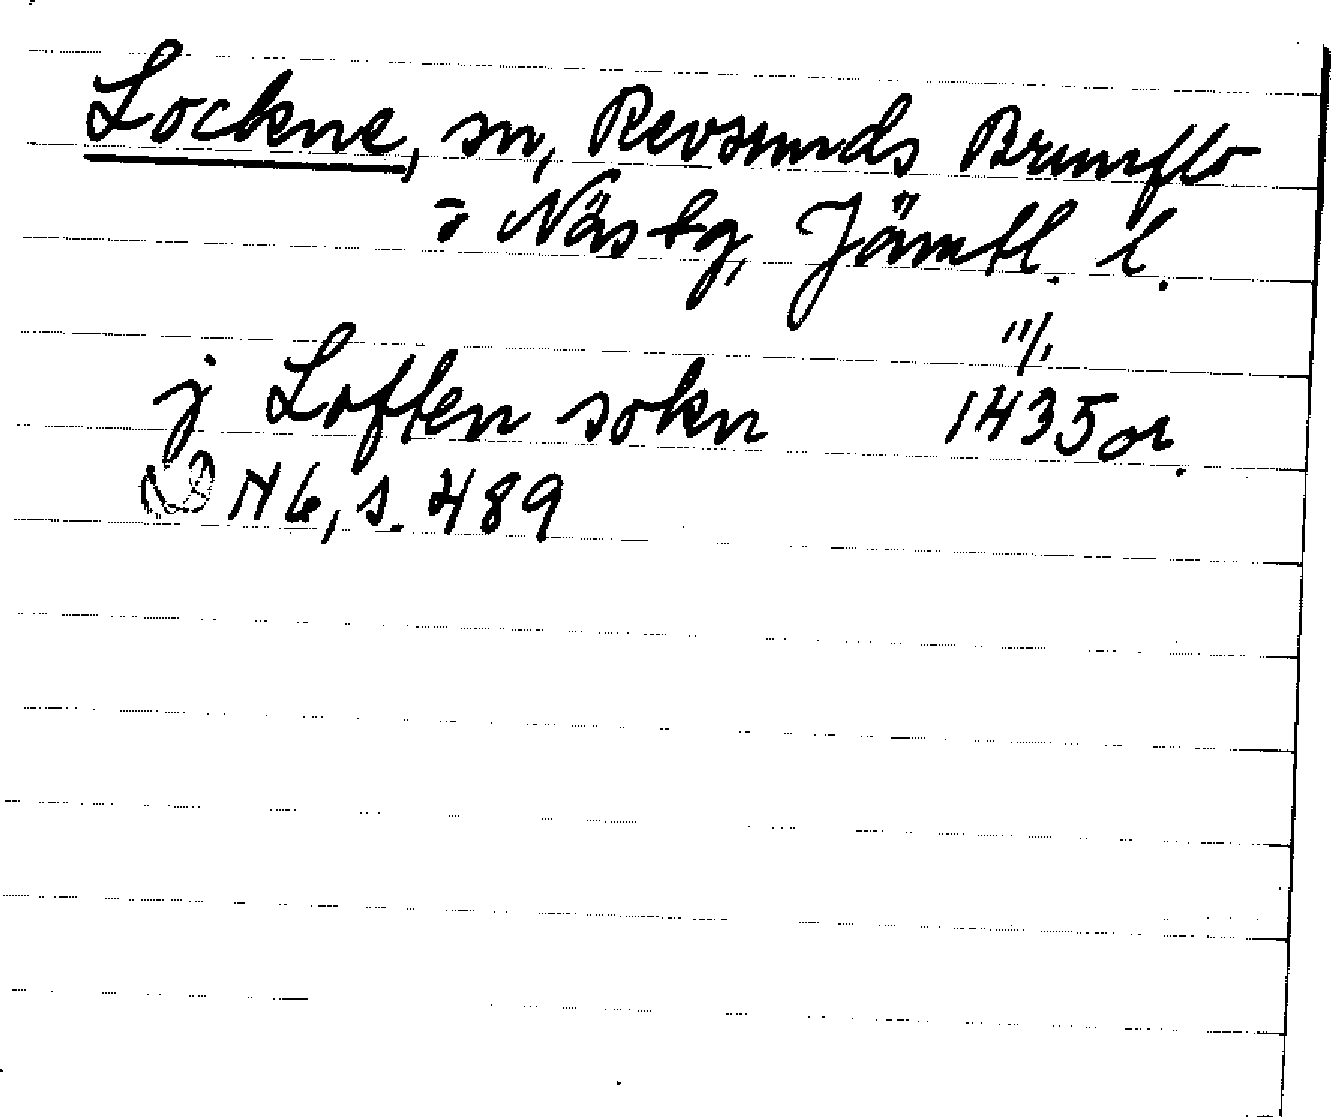 Lockne, sn, Revsunds Brunflo
o Näs tg, Jämtl. l.
11/1
j Loften sokn 1435 or.
DN 6, s. 489